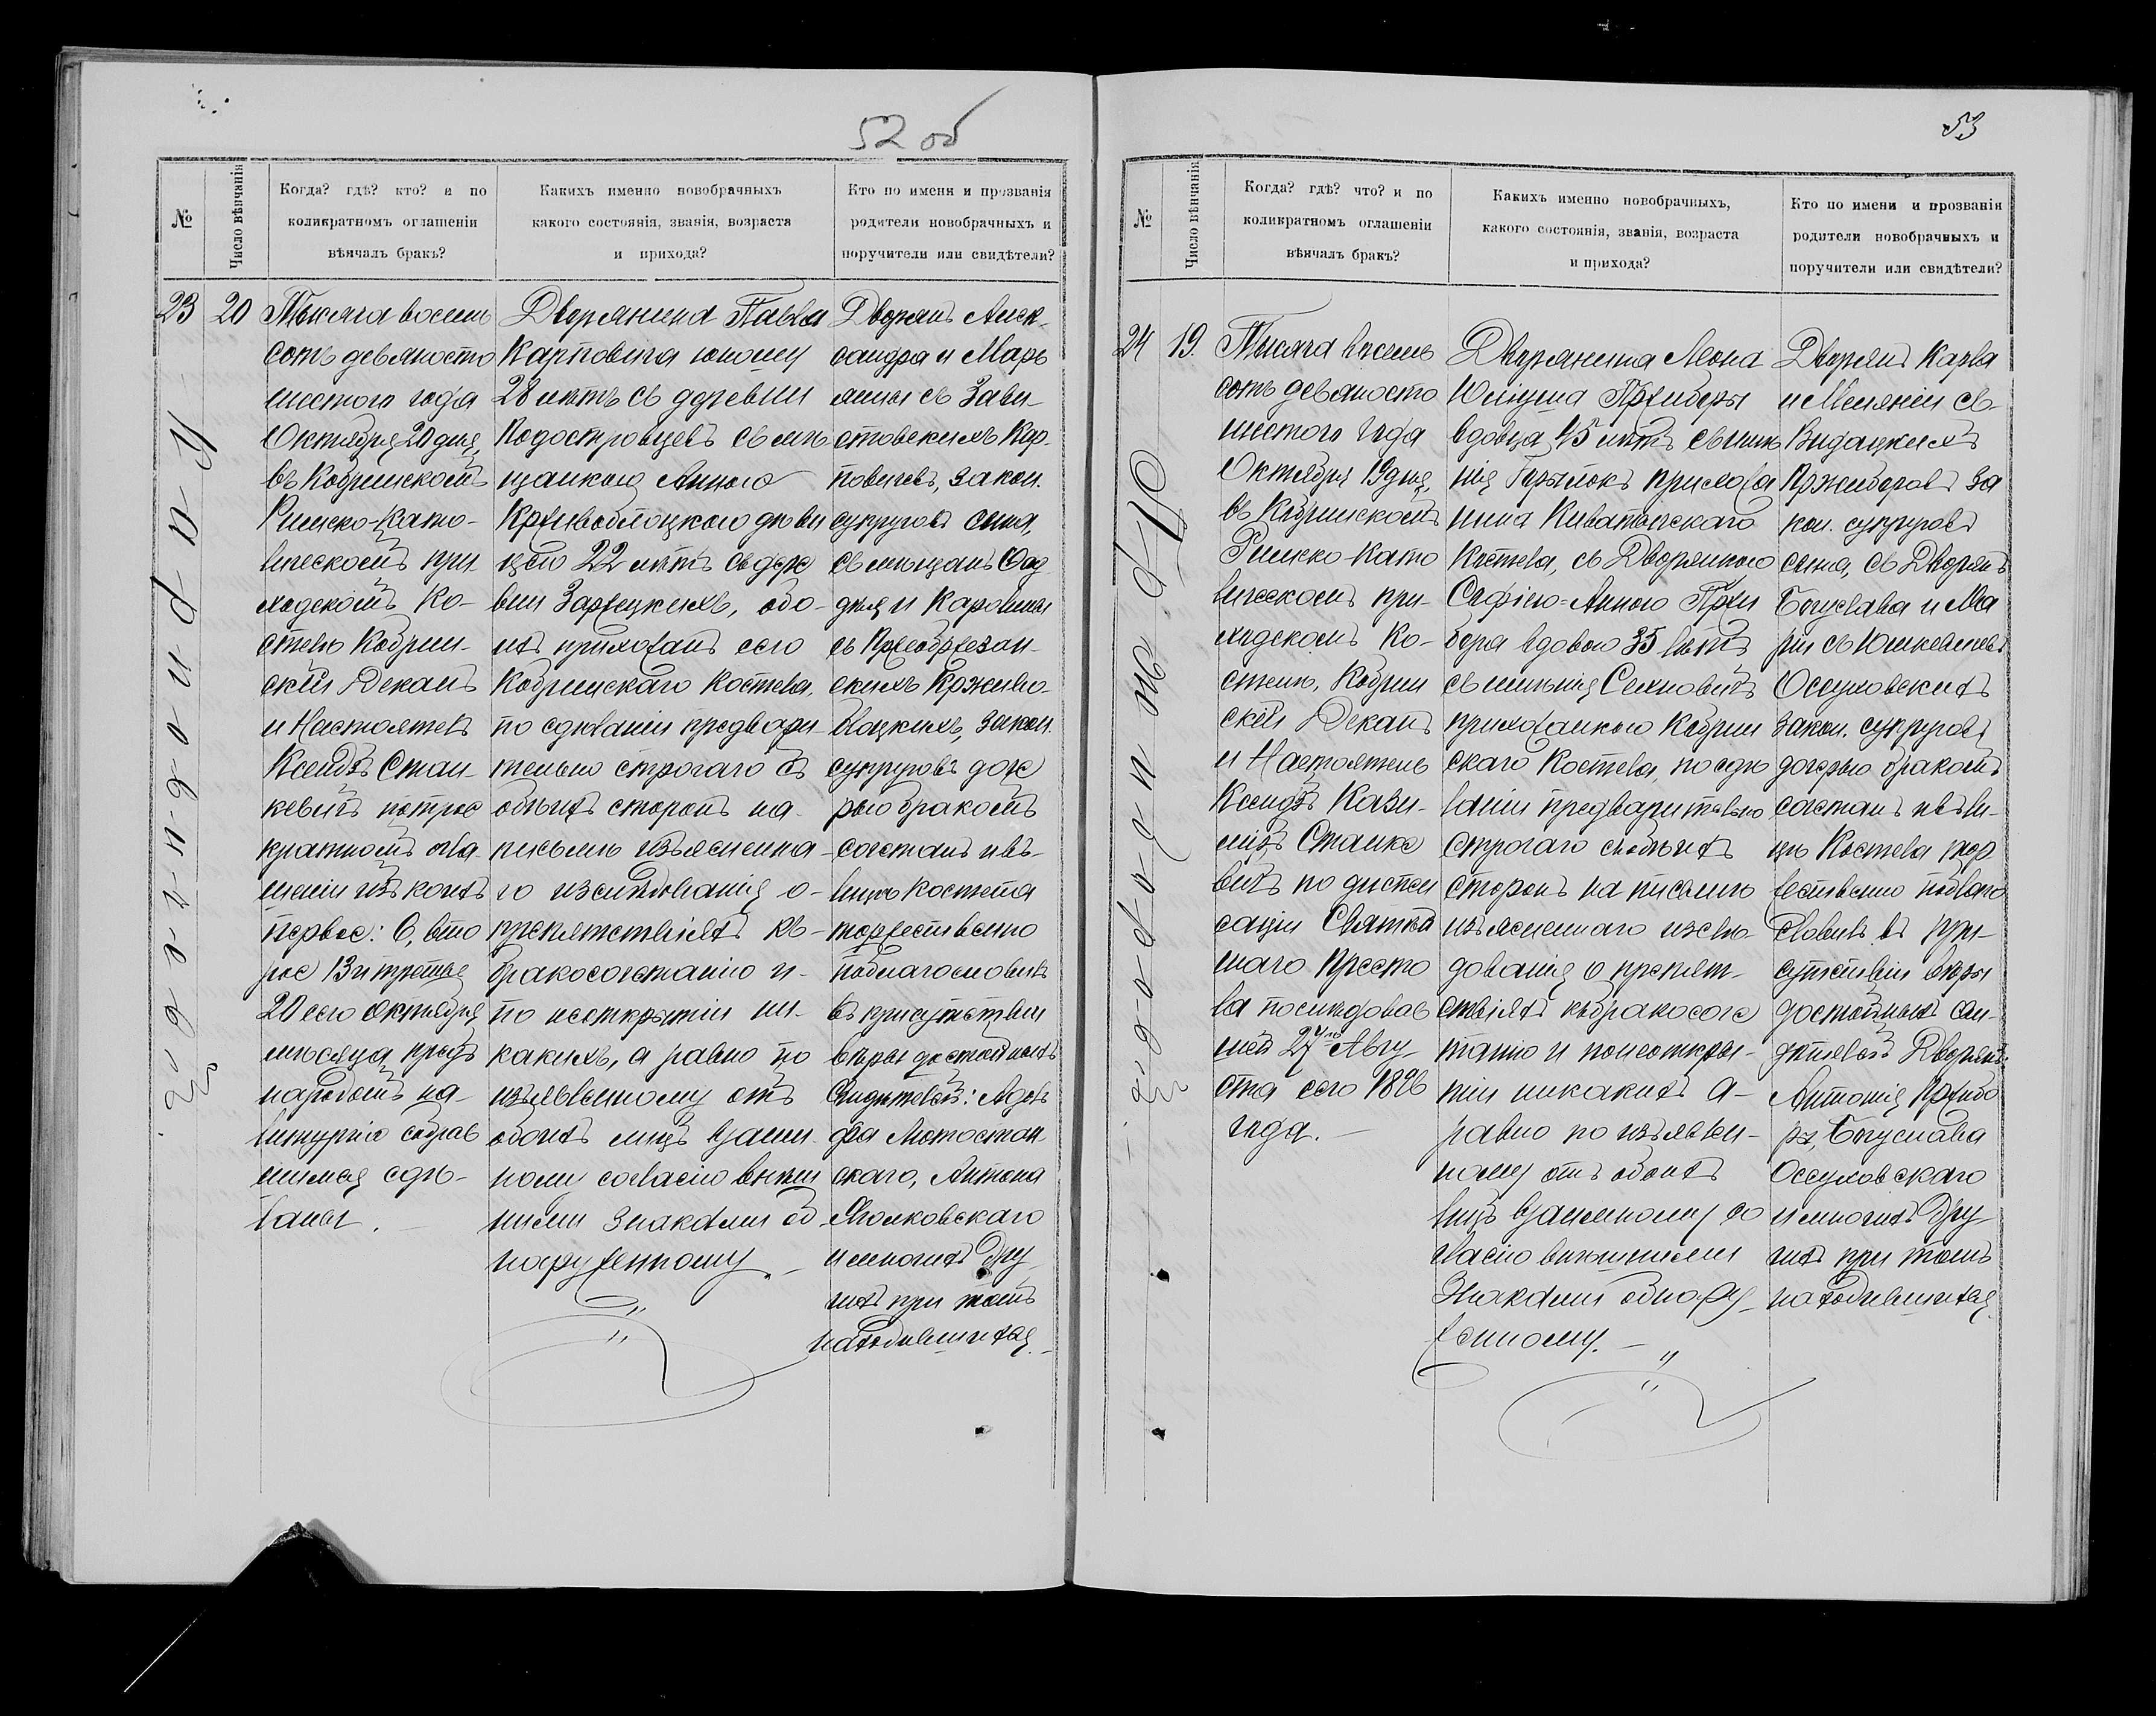 52 об
№
Число вѣнчанія
Когда? гдѣ? кто? и по
коликратномъ оглашеніи
вѣнчалъ бракъ?
Какихъ именно новобрачныхъ
какого состоянія, званія, возраста
и прихода?
Кто по имени и прозванія
родители новобрачныхъ и
поручители или свидѣтели?
23
20
Тысяча восемь
сотъ девяносто
шестого года
Октября 20 дня,
въ Кобринскомъ
Римско-Като-
лическомъ при-
ходскомъ Ко-
стелѣ Кобрин-
скій Деканъ
и Настоятель
Ксендзъ Стан-
кевичъ потрое
кратномъ огла-
шеніи изъ коихъ
первое: 6, вто
рое 13 и третье
20 сего Октября
мѣсяца предъ
народомъ на
литургію собрав
шимся сдѣ-
ланы. –
Дворянина Павла
Карповича юношу
28 лѣтъ съ деревни
Подостровцевъ съ мѣ
щанкою Анною
Крживоблоцкою дѣви
цею 22 лѣтъ съ дере
вни Зарѣцкихъ, обо-
ихъ прихожанъ сего
Кобринскаго Костела,
по сдѣланіи предвари-
тельно строгаго съ
обѣихъ сторонъ на
письмѣ изъясненна-
го изслѣдованія о-
препятствіяхъ къ-
бракосочетанію и-
по неоткрытіи ни-
какихъ, а равно по
изъявленному отъ
обоихъ лицъ взаим
ному согласію внѣш
ними знаками об
наруженному. –
Дворянъ Алек-
сандра и Марь
янны съ Зави-
стовскихъ Кар-
повичевъ, закон.
супруговъ сына,
съ мѣщанъ Фад
дея и Каролины
съ Пржеобржезан-
скихъ Крживо-
блоцкихъ, закон.
супруговъ доче
рью бракомъ
сочеталъ и въ-
лицѣ Костела
торжественно
поблагословилъ
въ присутствіи
вѣры достойныхъ
Свидѣтелей: Адоль
фа Мотостан-
скаго, Антона
Яголковскаго
и многихъ дру
гихъ при томъ
находившихся. –
53
№
Число вѣнчанія
Когда? гдѣ? что? и по
коликратномъ оглашеніи
вѣнчалъ бракъ?
Какихъ именно новобрачныхъ,
какого состоянія, званія, возраста
и прихода?
Кто по имени и прозванія
родители новобрачныхъ и
поручители или свидѣтели?
24
19.
Тысяча восемь
сотъ девяносто
шестого года
Октября 19 дня,
въ Кобринскомъ
Римско-Като
лическомъ при-
ходскомъ Ко-
стелѣ, Кобрин
скій Деканъ
и Настоятель
Ксендзъ Кази-
міръ Станке
вичъ по диспен
саціи Святѣй
шаго Престо
ла послѣдовав
шей 27го Авгу-
ста сего 1896
года. –
Дворянина Леона
Юліуша Пржиборы
вдовца 45 лѣтъ съ имѣ
нія Горылокъ прихожа
нина Киватычскаго
Костела, съ Дворянкою
Софіею-Анною Пржи
бора вдовою 35 лѣтъ
съ имѣнія Сехновичъ
прихожанкою Кобрин
скаго Костела, по сдѣ
ланіи предварительно
строгаго съ обѣихъ
сторонъ на письмѣ
изъясненнаго изслѣ-
дованія о препят-
ствіяхъ къ бракосоче
танію и по неоткры-
тіи никакихъ а-
равно по изъявлен-
ному отъ обоихъ
лицъ взаимному со
гласію внѣшними
знаками обнару-
женному. –
Дворянъ Карла
и Меляніи съ-
Видацкихъ
Пржиборовъ за
кон. супруговъ
сына, съ Дворянъ
Богуслава и Ма
ріи съ Юшкевичевъ
Оссуховскихъ
закон. супруговъ
дочерью бракомъ
сочеталъ и въ ли-
цѣ Костела тор
жественно поблаго
словилъ въ при-
сутствіи вѣры
достойныхъ сви-
дѣтелей Дворянъ:
Антонія Пржибо
ры, Богуслава
Оссуховскаго
и многихъ дру-
гихъ при томъ
находившихся.